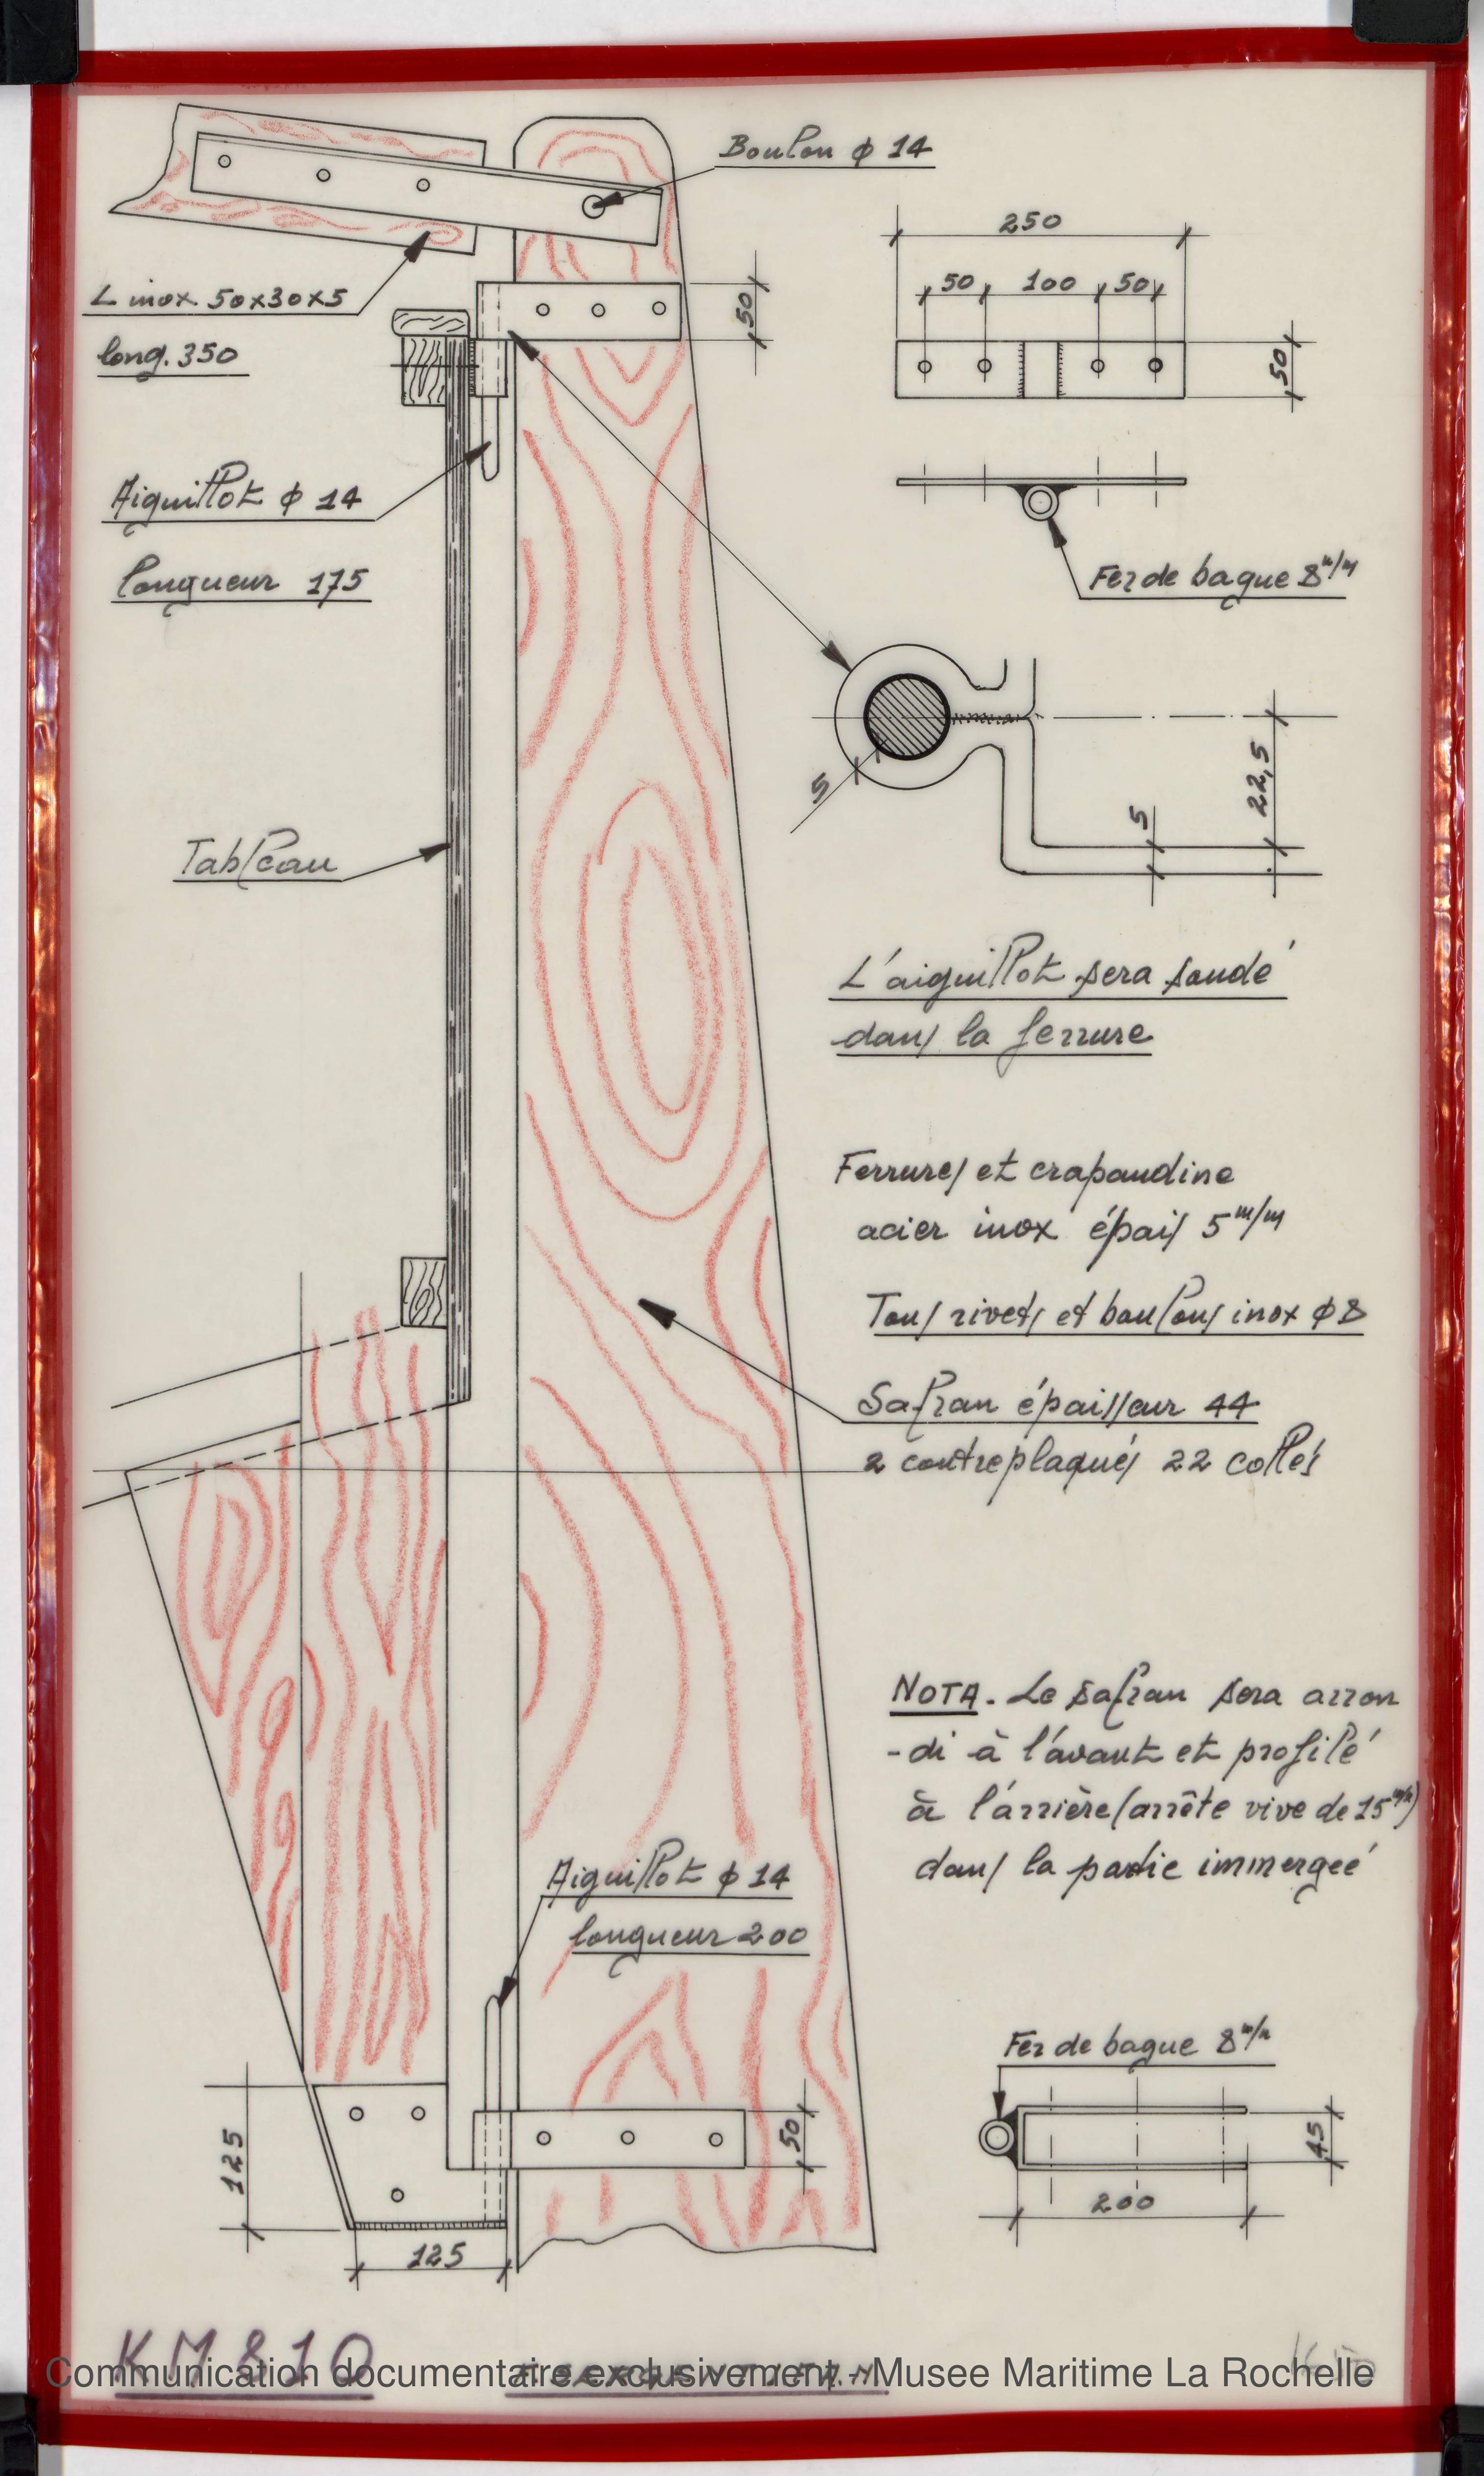 Boulon ϕ 14
250
50 100 50
L inox 50x30x5
long. 350
50
50
Aiguillot ϕ 14
longueur 175
Fer de bague 8 m/m
5
5
22,5
Tableau
L'aiguillot sera soudé
dans la ferrure
Ferrures et crapaudine
acier inox épais 5 m/m
Tous rivets et boulons inox ϕ 8
Safran épaisseur 44
2 contreplaqués 22 collés
NOTA. Le safran sera arron
-di à l'avant et profilé
à l'arrière (arrête vive de 15 m/m)
dans la partie immergeé
Aiguillot ϕ 14
longueur 200
Fer de bague 8 m/m
50
45
125
200
125
KM 810
Communication documentaire exclusivement - Musee Maritime La Rochelle